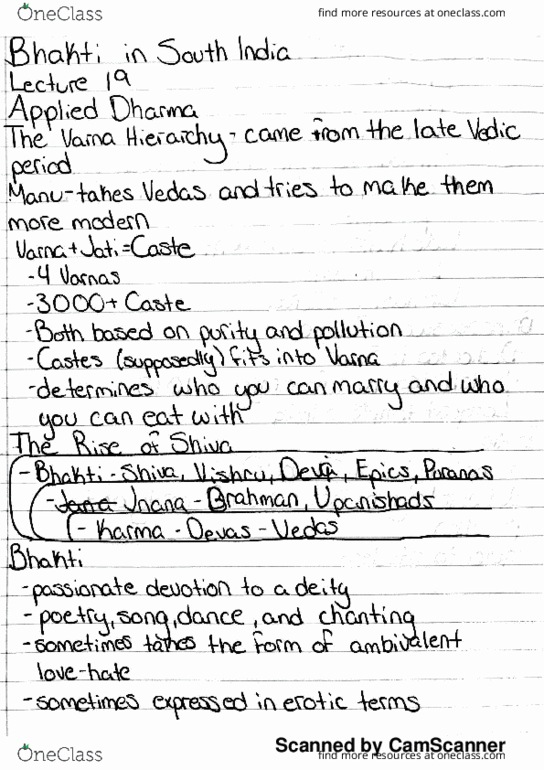 OneClass
find more resources at oneclass.com
Bhakti in South India
Lecture 19
Applied Dharma
The Varna Hierarchy - came from the late Vedic
period
Manu - takes Vedas and tries to make them
more modern
Varna + Jati = Caste
- 4 Varnas
- 3000+ Caste
- Both based on purity and pollution
- Castes (supposedly) fits into Varna
- determines who you can marry and who
you can eat with
The Rise of Shiva
- Bhakti - Shiva, Vishnu, Devi, Epics, Puranas
- Jnana - Brahman, Upanishads
- Karma - Devas - Vedas
Bhakti
- passionate devotion to a deity
- poetry, song, dance, and chanting
- sometimes takes the form of ambivalent
love-hate
- sometimes expressed in erotic terms
Scanned by CamScanner
OneClass
find more resources at oneclass.com